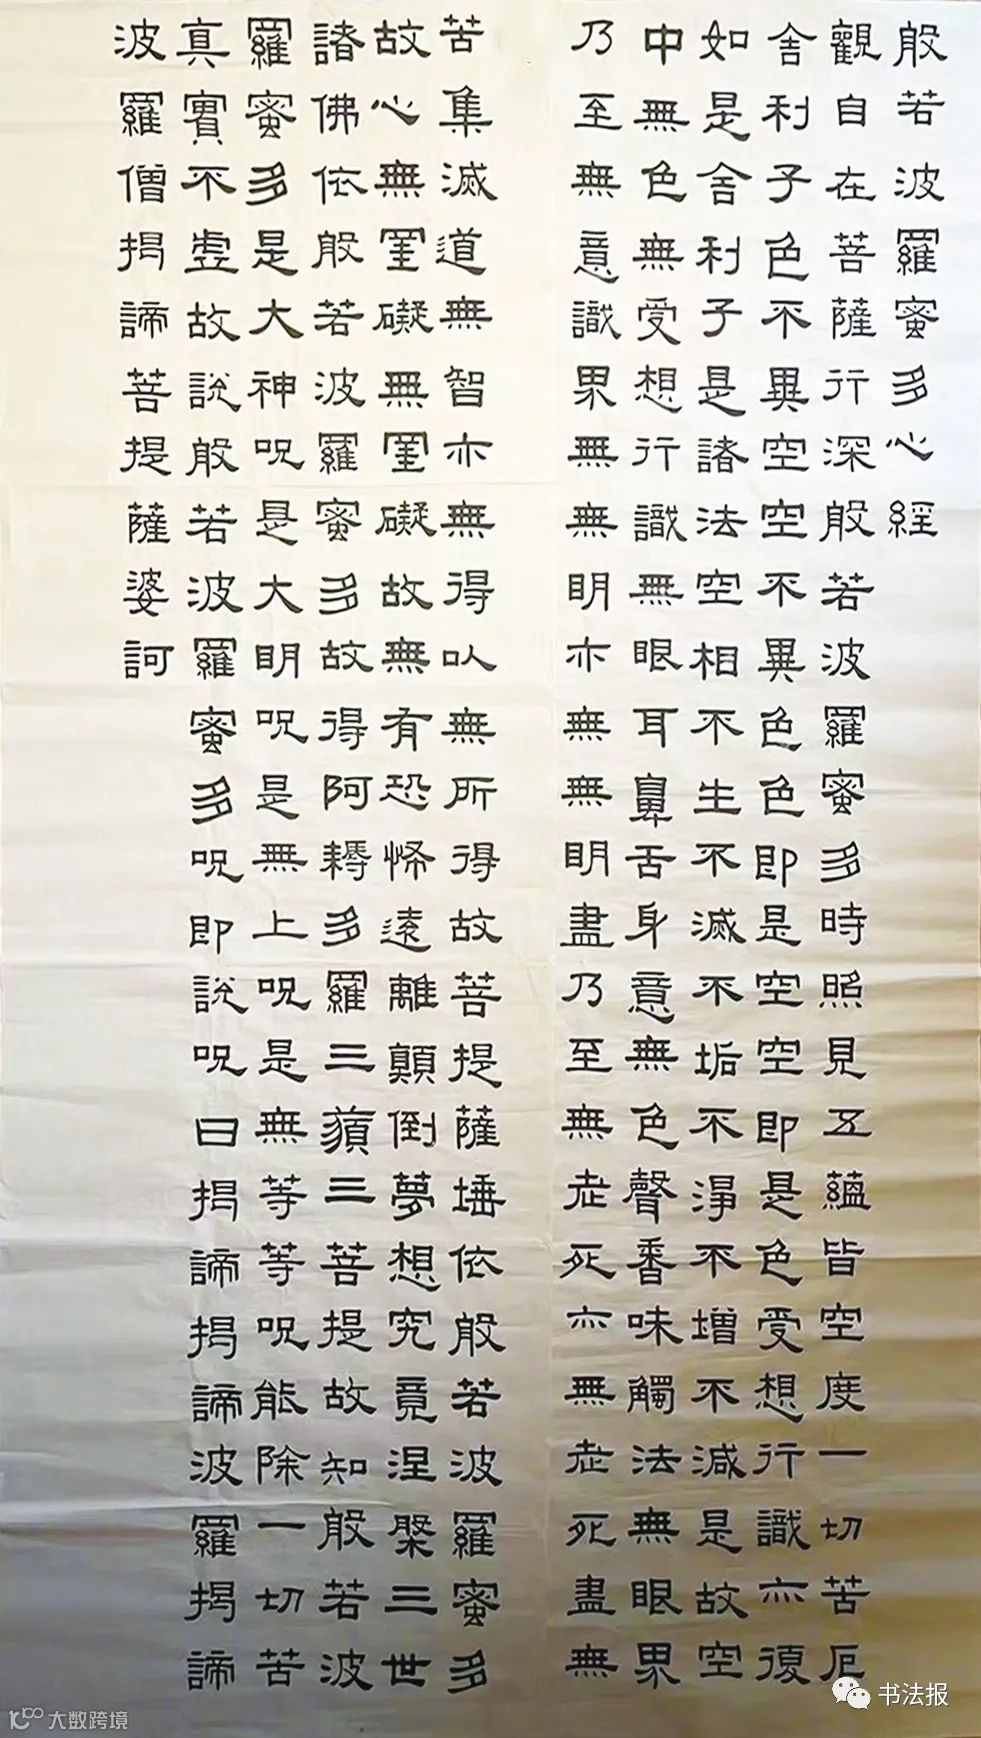 般若波羅蜜多心經
觀自在菩薩行深般若波羅蜜多時照見五蘊皆空度一切苦厄
舍利子色不異空空不異色色即是空空即是色受想行識亦復
如是舍利子是諸法空相不生不滅不垢不淨不增不減是故空
中無色無受想行識無眼耳鼻舌身意無色聲香味觸法無眼界
乃至無意識界無無明亦無無明盡乃至無老死亦無老死盡無
苦集滅道無智亦無得以無所得故菩提薩埵依般若波羅蜜多
故心無罣礙無罣礙故無有恐怖遠離顛倒夢想究竟涅槃三世
諸佛依般若波羅蜜多故得阿耨多羅三藐三菩提故知般若波
羅蜜多是大神呪是大明呪是無上呪是無等等呪能除一切苦
真實不虛故說般若波羅蜜多呪即說呪曰揭諦揭諦波羅揭諦
波羅僧揭諦菩提薩婆訶
书法报
大数跨境